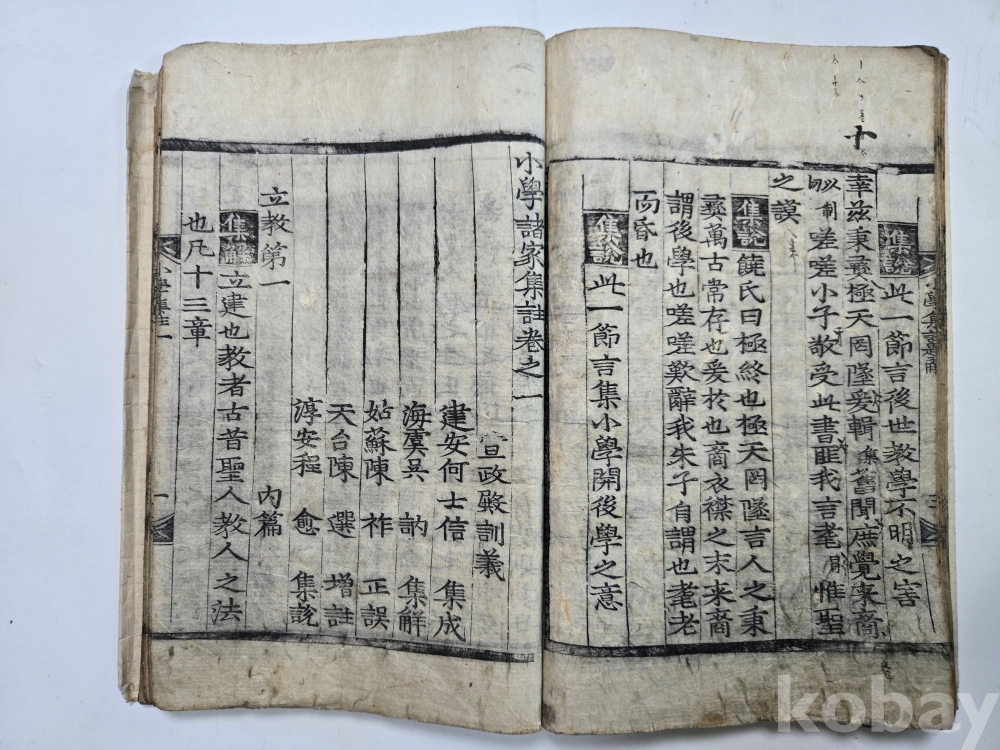 集說此一節言後世教學不明之害
幸兹秉彝極天罔墜爰輯舊聞庶覺來裔
嗟嗟小子敬受此書匪我言耄惟聖
之謨
集說饒氏曰極終也極天罔墜言人之秉
彝萬古常存也爰於也裔衣襟之末來裔
謂後學也嗟嗟歎辭我朱子自謂也耄老
而昏也
集說此一節言集小學開後學之意
小學諸家集註卷之一
宣政殿訓義
建安何士信 集成
海虞吳 訥 集解
姑蘇陳 祚 正誤
天台陳 選 增註
淳安程 愈 集說
立教第一 內篇
集解立建也教者古昔聖人教人之法
也凡十三章
小學集註一
一
kobay